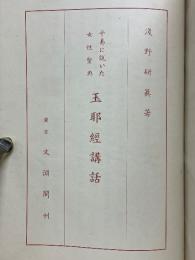 浅野研眞著
平易に説いた
女性聖典
玉耶經講話
東京 文淵閣刊